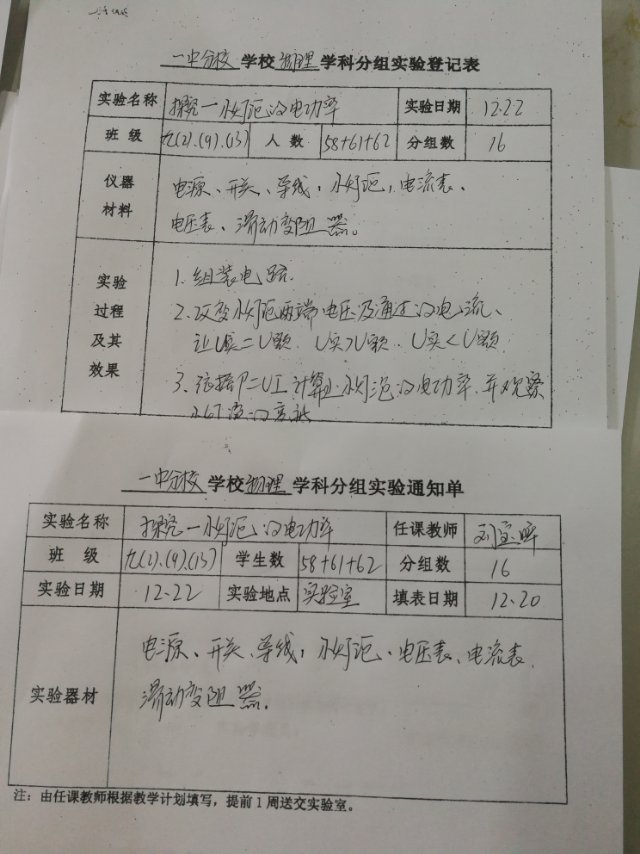 一中分校 学校 物理 学科分组实验登记表
实验名称 探究小灯泡的电功率 实验日期 12.22
班 级 九(2).(9).(13) 人 数 58+61+62 分组数 16
仪器材料 电源、开关、导线、小灯泡、电流表、
电压表、滑动变阻器。
实验过程及其效果 1.组装电路.
2.改变小灯泡两端电压及通过的电流、
让U实=U额. U实>U额. U实<U额
3.根据P=UI计算出小灯泡的电功率.并观察
小灯泡的亮
一中分校 学校 物理 学科分组实验通知单
实验名称 探究小灯泡的电功率 任课教师 刘宝
班 级 九(2).(9).(13) 学生数 58+61+62 分组数 16
实验日期 12.22 实验地点 实验室 填表日期 12.20
实验器材 电源、开关、导线、小灯泡、电压表、电流表、
滑动变阻器。
注：由任课教师根据教学计划填写，提前1周送交实验室。